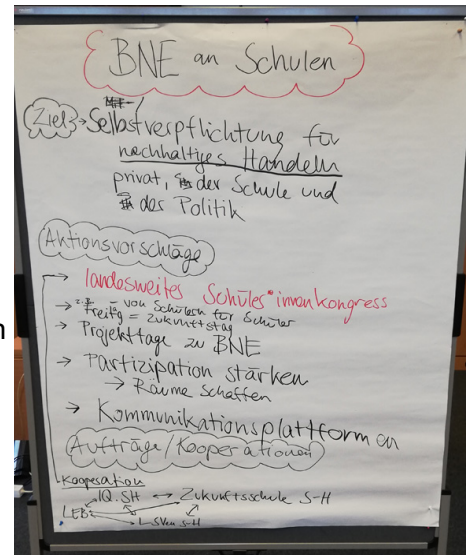 BNE an Schulen
Ziel → Selbstverpflichtung für
nachhaltiges Handeln
privat, der Schule und
der Politik
Aktionsvorschläge
→ landesweites Schüler*innenkongress
z.B. – von Schülern für Schüler
→ Freitag = Zukunftstag
→ Projekttage zu BNE
→ Partizipation stärken
→ Räume schaffen
→ Kommunikationsplattformen
Aufträge/Kooperationen
Kooperation
IQ.SH ↔ Zukunftsschule S-H
LEB
LSVen S-H